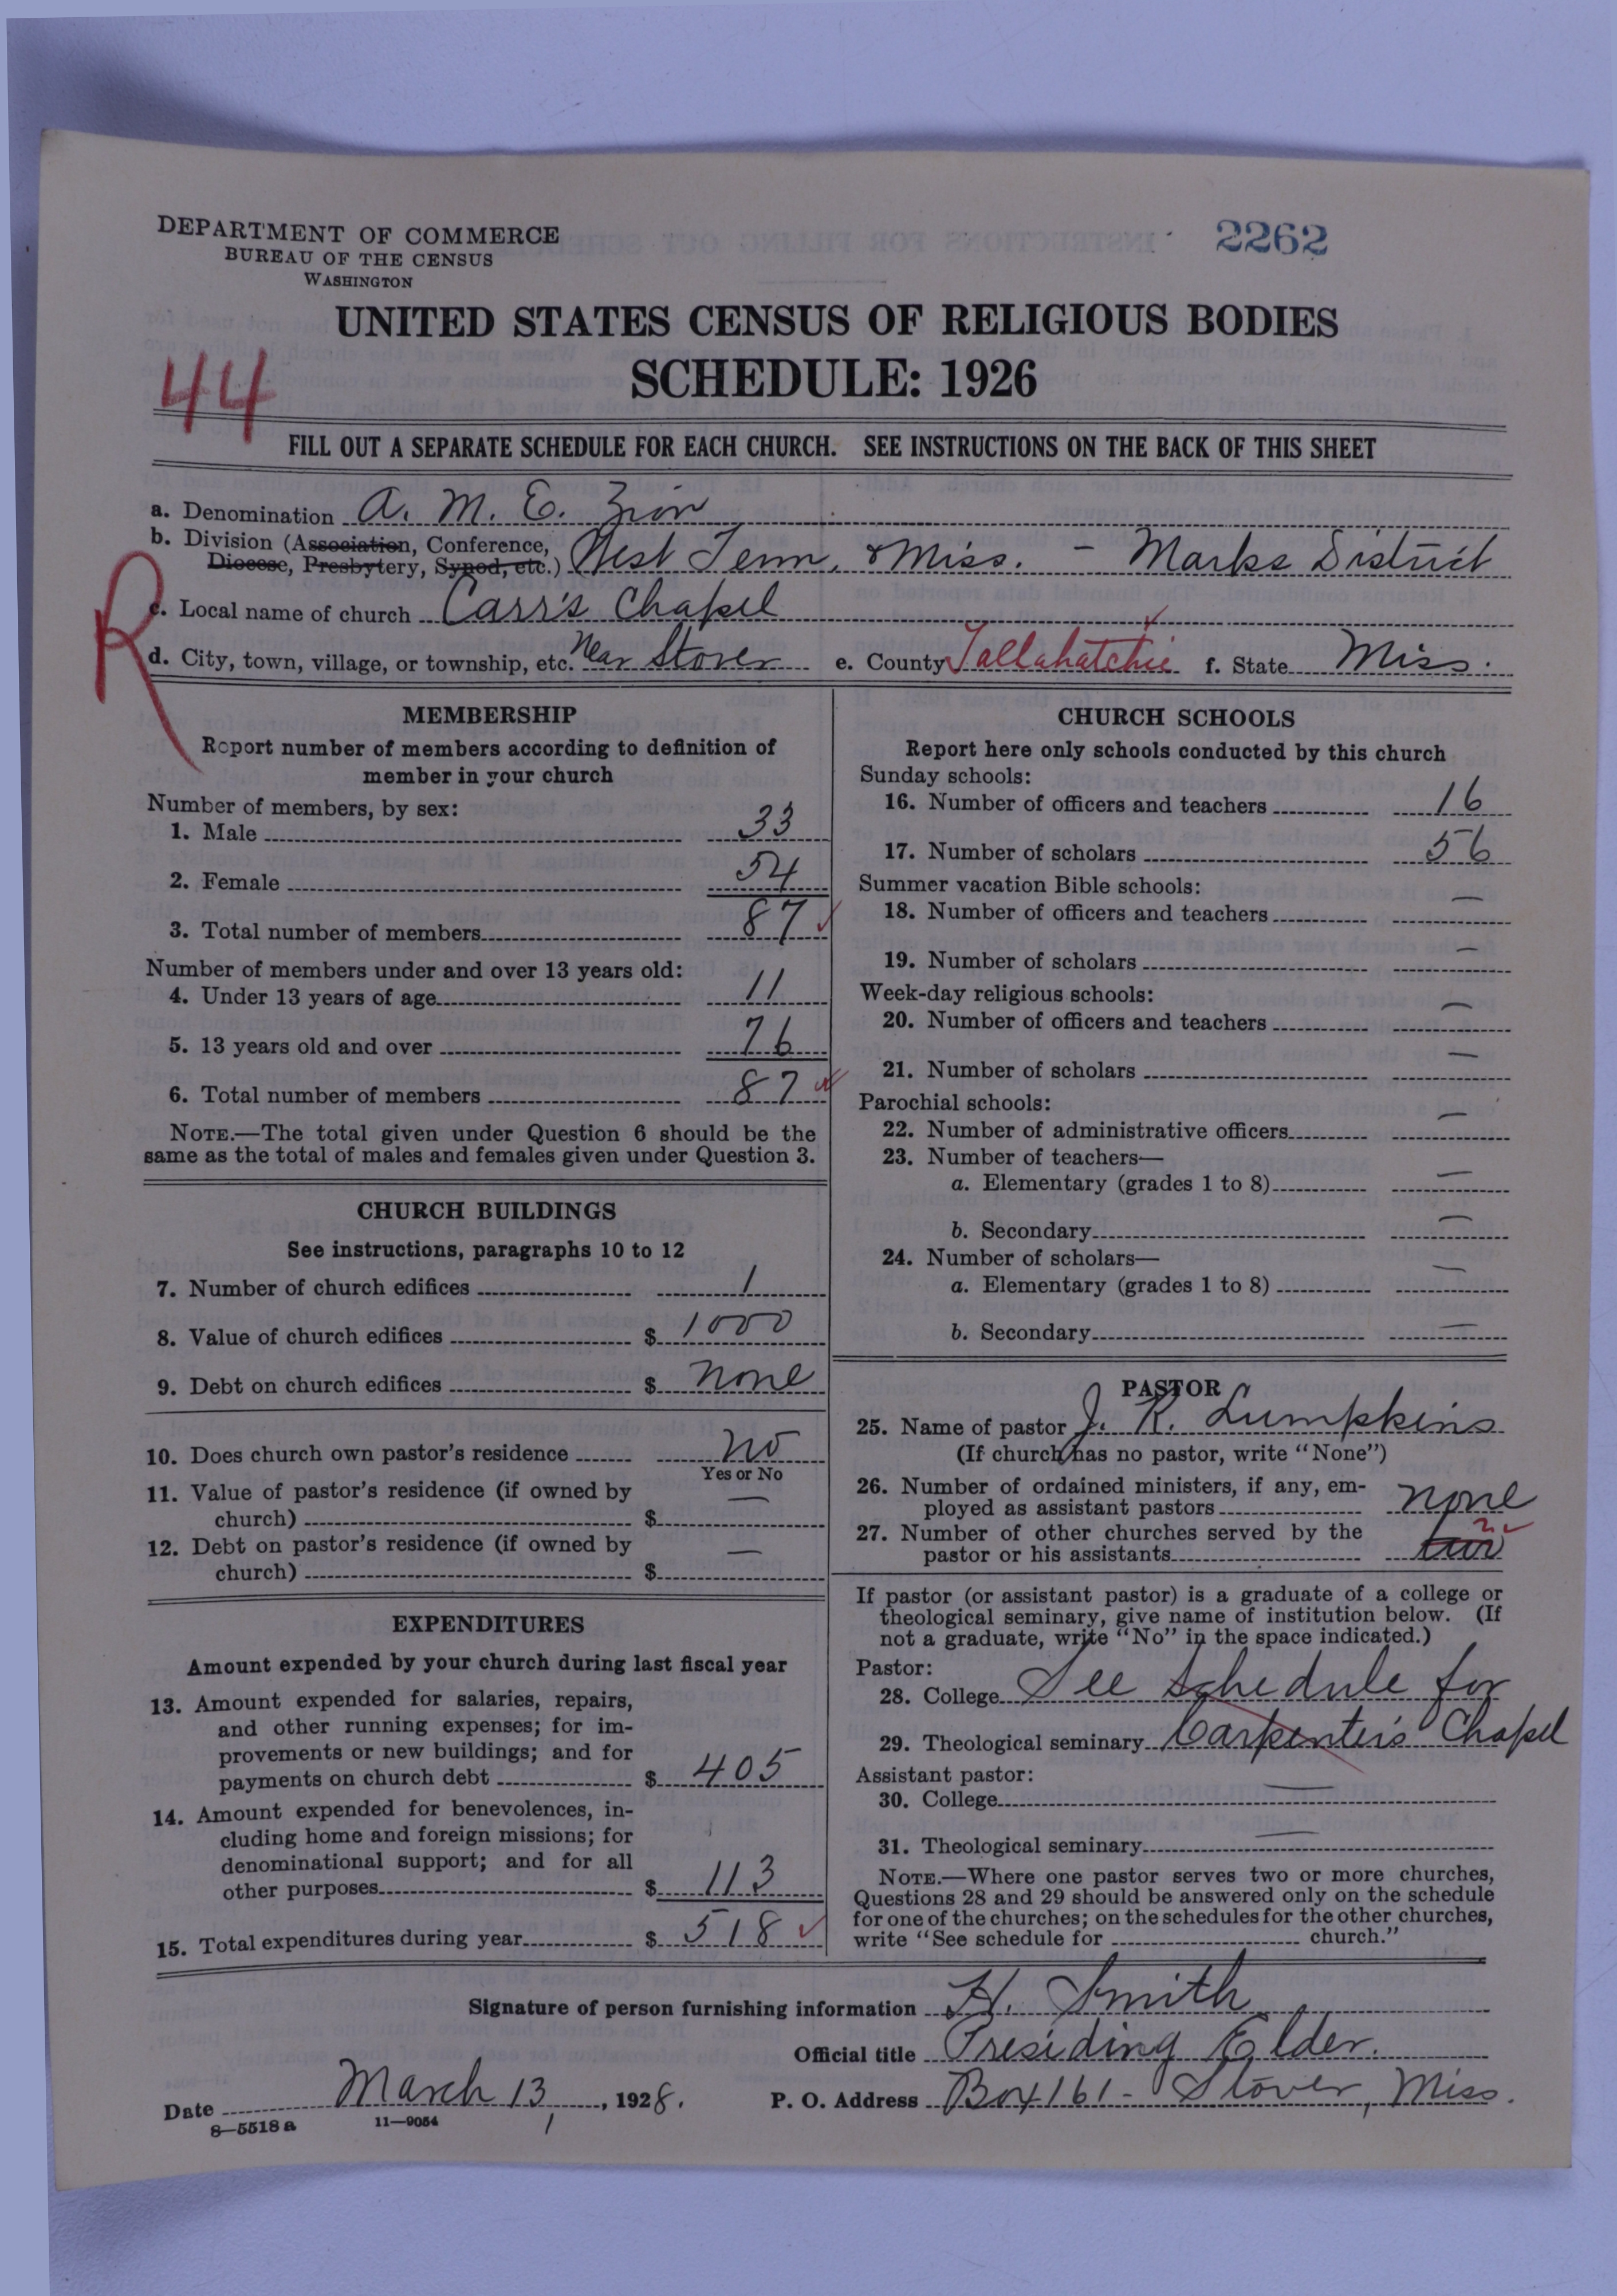 DEPARTMENT OF COMMERCE
BUREAU OF THE CENSUS
WASHINGTON
2262
UNITED STATES CENSUS OF RELIGIOUS BODIES
SCHEDULE: 1926
44
FILL OUT A SEPARATE SCHEDULE FOR EACH CHURCH. SEE INSTRUCTIONS ON THE BACK OF THIS SHEET
a. Denomination A. M. E. Zion
b. Division (Association, Conference, Diocese, Presbytery, Synod, etc.) West Tenn. & Miss. - Marks District
R
c. Local name of church Carr's Chapel
d. City, town, village, or township, etc. Near Stover e. County Tallahatchie f. State Miss.
MEMBERSHIP
Report number of members according to definition of
member in your church
Number of members, by sex:
1. Male 33
2. Female 54
3. Total number of members 87
Number of members under and over 13 years old:
4. Under 13 years of age 11
5. 13 years old and over 76
6. Total number of members 87
NOTE.—The total given under Question 6 should be the
same as the total of males and females given under Question 3.
CHURCH BUILDINGS
See instructions, paragraphs 10 to 12
7. Number of church edifices 1
8. Value of church edifices $ 1000
9. Debt on church edifices $ none
10. Does church own pastor's residence no
Yes or No
11. Value of pastor's residence (if owned by
church) $ —
12. Debt on pastor's residence (if owned by
church) $ —
EXPENDITURES
Amount expended by your church during last fiscal year
13. Amount expended for salaries, repairs,
and other running expenses; for im-
provements or new buildings; and for
payments on church debt $ 405
14. Amount expended for benevolences, in-
cluding home and foreign missions; for
denominational support; and for all
other purposes $ 113
15. Total expenditures during year $ 518
CHURCH SCHOOLS
Report here only schools conducted by this church
Sunday schools:
16. Number of officers and teachers 16
17. Number of scholars 56
Summer vacation Bible schools:
18. Number of officers and teachers —
19. Number of scholars —
Week-day religious schools:
20. Number of officers and teachers —
21. Number of scholars —
Parochial schools:
22. Number of administrative officers —
23. Number of teachers—
a. Elementary (grades 1 to 8) —
b. Secondary —
24. Number of scholars—
a. Elementary (grades 1 to 8) —
b. Secondary —
PASTOR
25. Name of pastor J. R. Lumpkins
(If church has no pastor, write "None")
26. Number of ordained ministers, if any, em-
ployed as assistant pastors none
27. Number of other churches served by the
pastor or his assistants two 2
If pastor (or assistant pastor) is a graduate of a college or
theological seminary, give name of institution below. (If
not a graduate, write "No" in the space indicated.)
Pastor:
28. College See Schedule for
29. Theological seminary Carpenter's Chapel
Assistant pastor:
30. College —
31. Theological seminary —
NOTE.—Where one pastor serves two or more churches,
Questions 28 and 29 should be answered only on the schedule
for one of the churches; on the schedules for the other churches,
write "See schedule for church."
Signature of person furnishing information H. Smith
Official title Presiding Elder.
Date March 13, 1928. P. O. Address Box 161 - Stover, Miss.
8—5518 a 11—9054